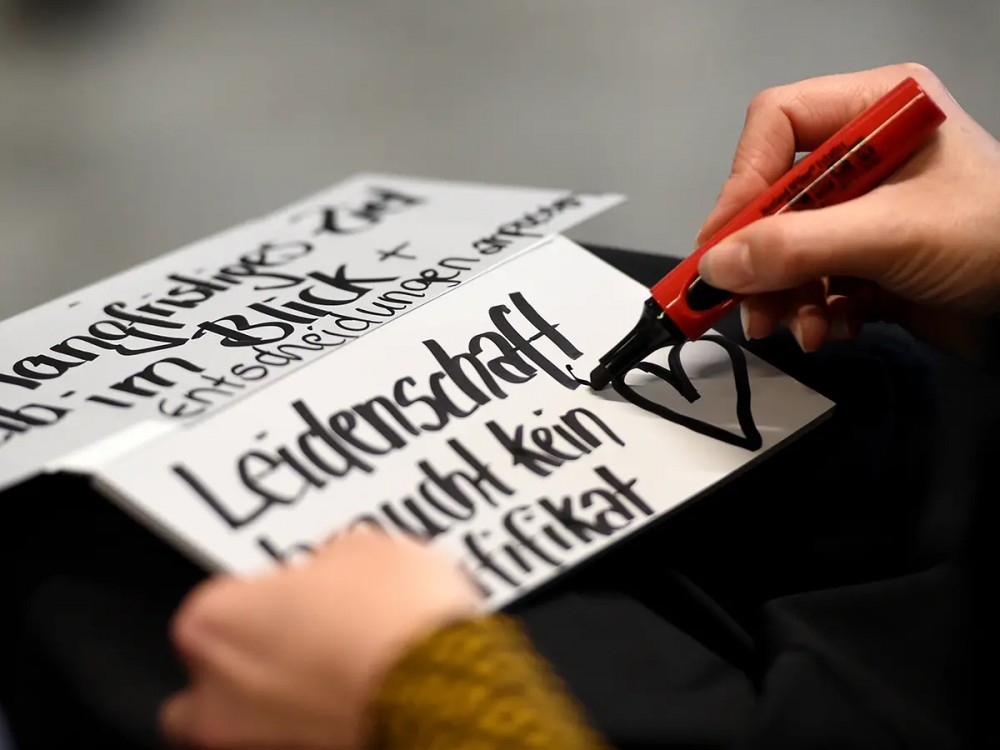 langfristiges Ziel
im Blick +
Entscheidungen anpassen
Leidenschaft
braucht kein